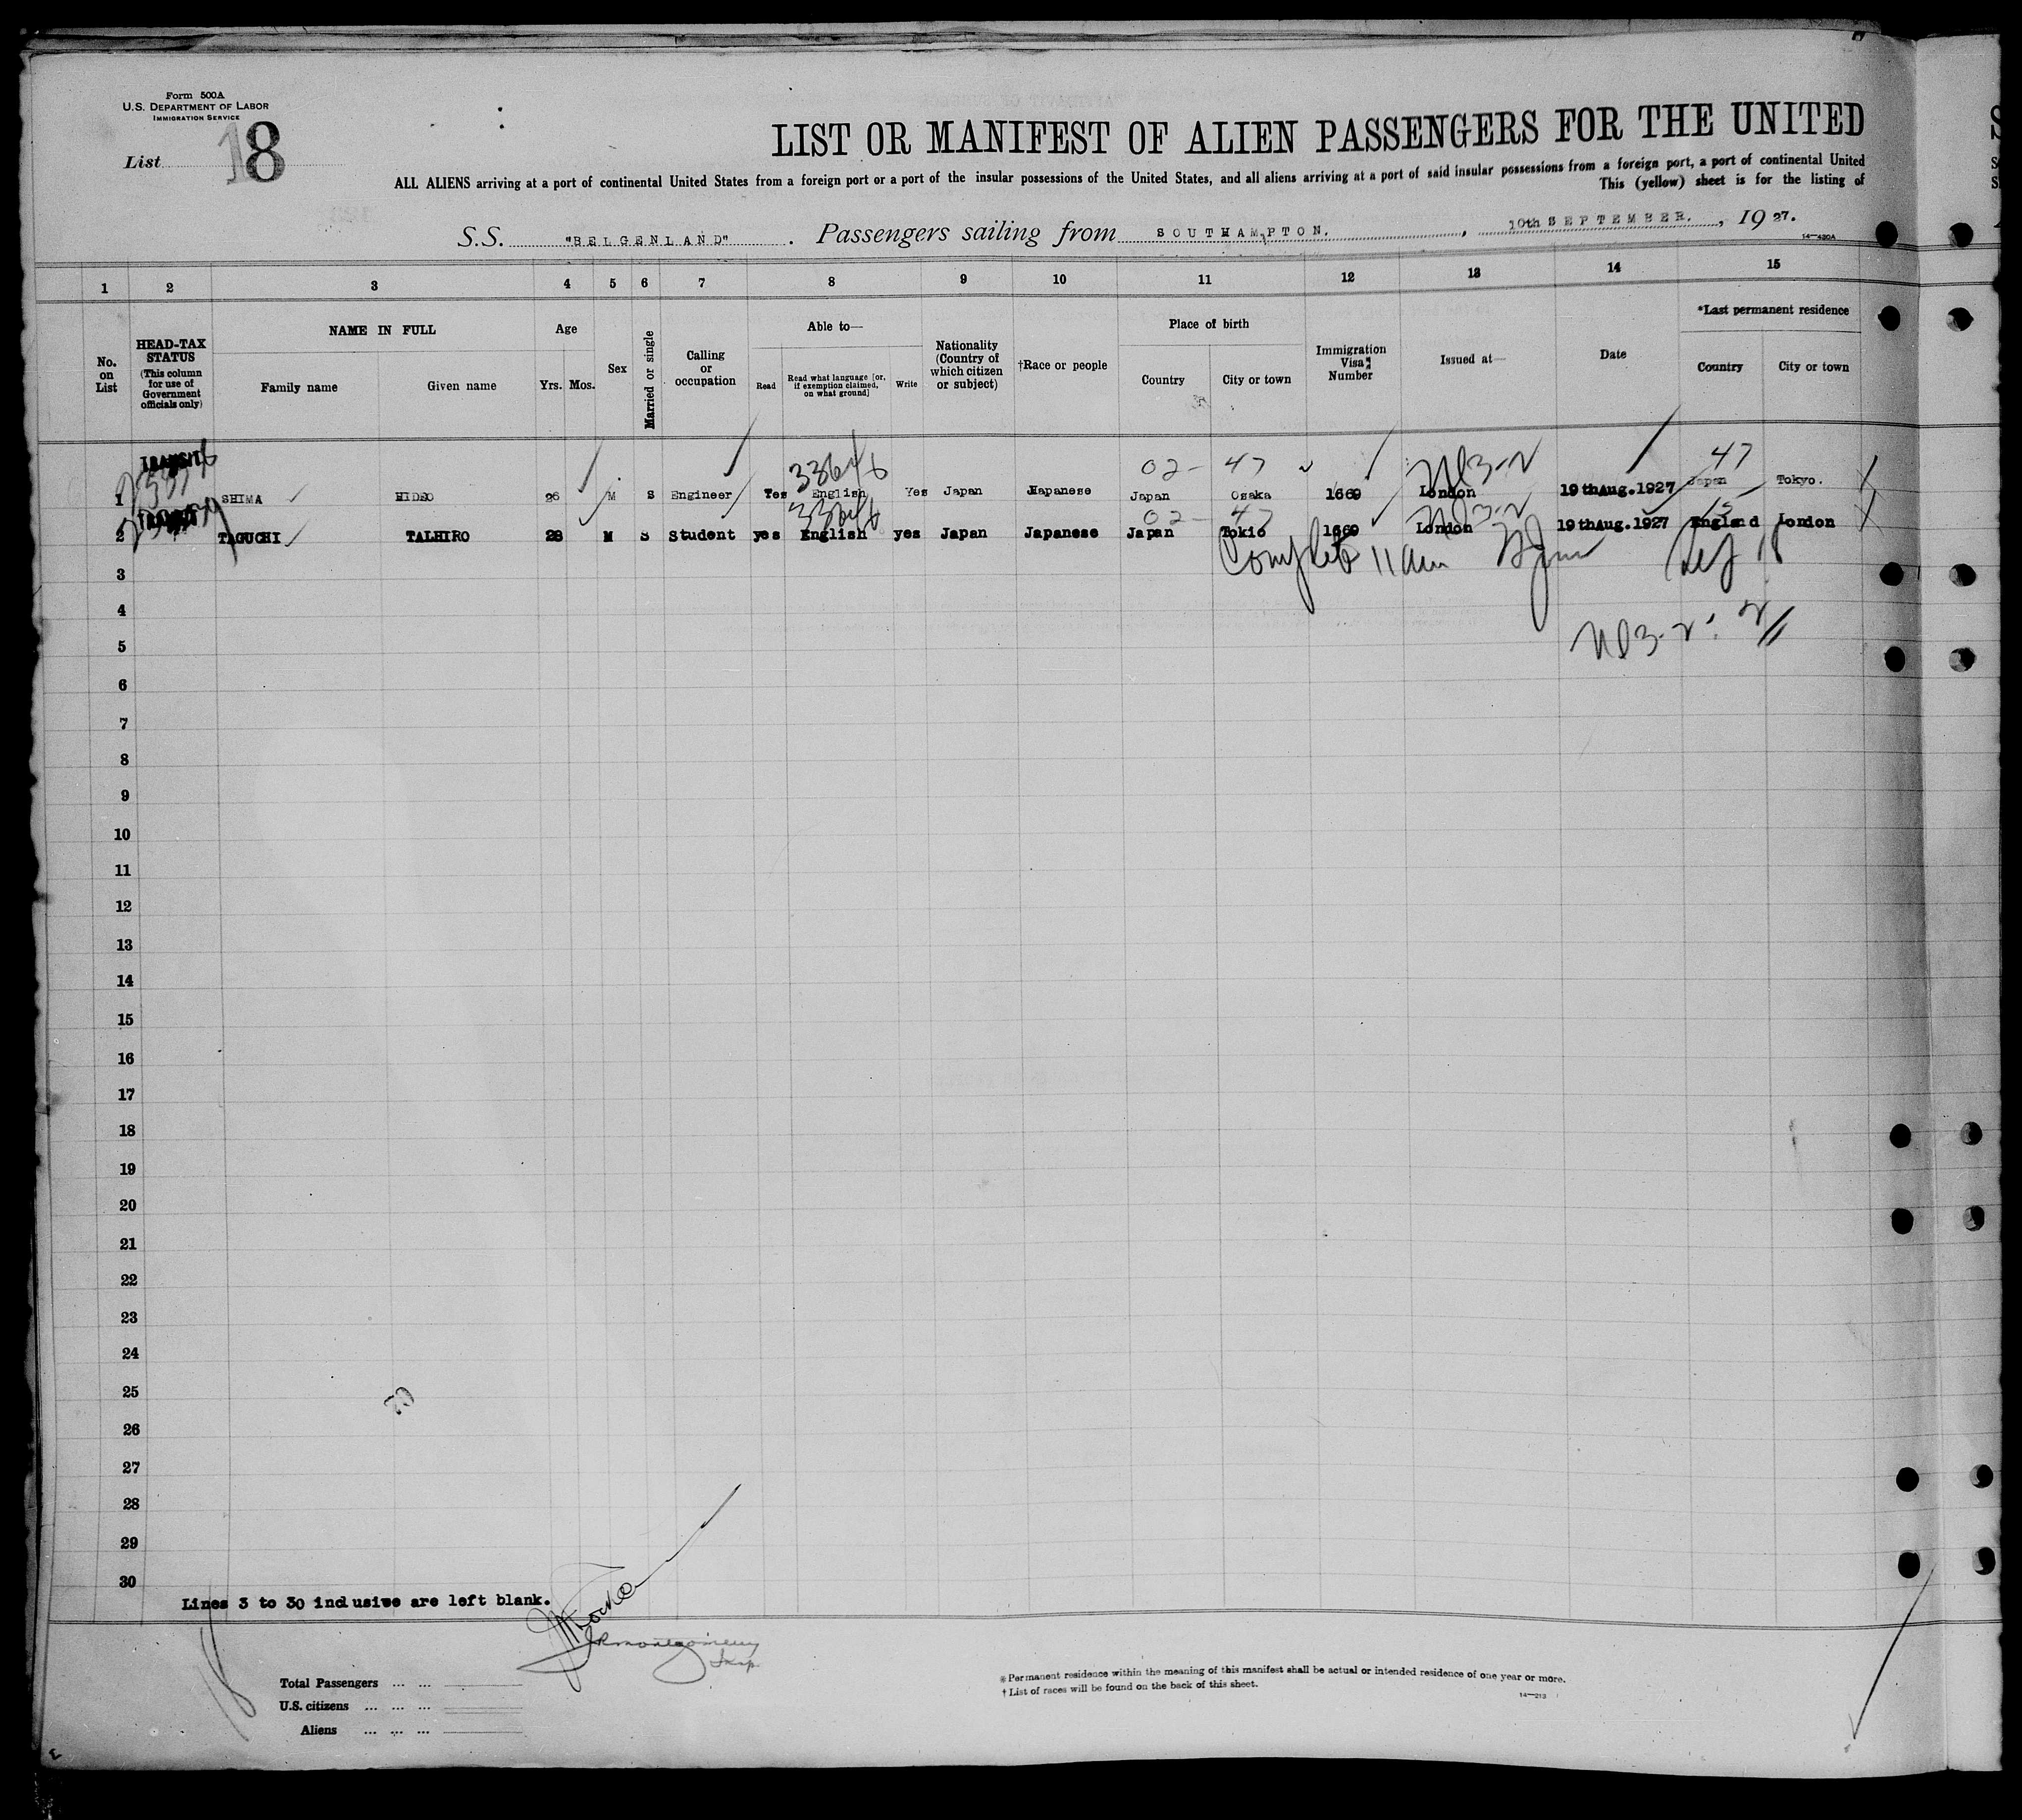 Form 500A
U.S. DEPARTMENT OF LABOR
IMMIGRATION SERVICE
List 18
LIST OR MANIFEST OF ALIEN PASSENGERS FOR THE UNITED
ALL ALIENS arriving at a port of continental United States from a foreign port or a port of the insular possessions of the United States, and all aliens arriving at a port of said insular possessions from a foreign port, a port of continental United
This (yellow) sheet is for the listing of
S.S. "BELGENLAND". Passengers sailing from SOUTHAMPTON. , 10th SEPTEMBER. , 1927.
14—430A
1 2 3 4 5 6 7 8 9 10 11 12 13 14 15
No. on List
HEAD-TAX STATUS (This column for use of Government officials only)
NAME IN FULL
Family name Given name
Age
Yrs. Mos.
Sex
Married or single
Calling or occupation
Able to—
Read
Read what language [or, if exemption claimed, on what ground]
Write
Nationality (Country of which citizen or subject)
†Race or people
Place of birth
Country City or town
Immigration Visa Number
Issued at—
Date
*Last permanent residence
Country City or town
TRANSIT 33646 02- 47 47
1 SHIMA HIDEO 26 M S Engineer Yes English Yes Japan Japanese Japan Osaka 1669 London 19thAug.1927 Japan Tokyo.
02- 47 15
2 TAGUCHI TALHIRO 28 M S Student yes English yes Japan Japanese Japan Tokio 1669 London 19thAug.1927 England London
Complete 11 am
3
4
5
6
7
8
9
10
11
12
13
14
15
16
17
18
19
20
21
22
23
24
25
26
27
28
29
30
Lines 3 to 30 inclusive are left blank.
JR Montgomery
Insp.
Total Passengers ... ...
U.S. citizens ... ... ...
Aliens ... ... ...
*Permanent residence within the meaning of this manifest shall be actual or intended residence of one year or more.
†List of races will be found on the back of this sheet.
14—213